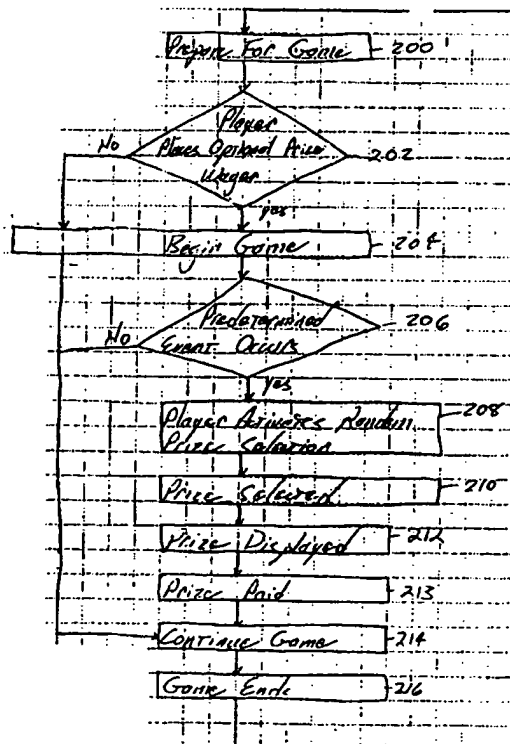 Prepare For Game 200
Player
Places Optional Prize 202
Wager
No
yes
Begin Game 204
Predetermined 206
Event Occurs
No
yes
Player Activates Random 208
Prize Selection
Prize Selected 210
Prize Displayed 212
Prize Paid 213
Continue Game 214
Game Ends 216